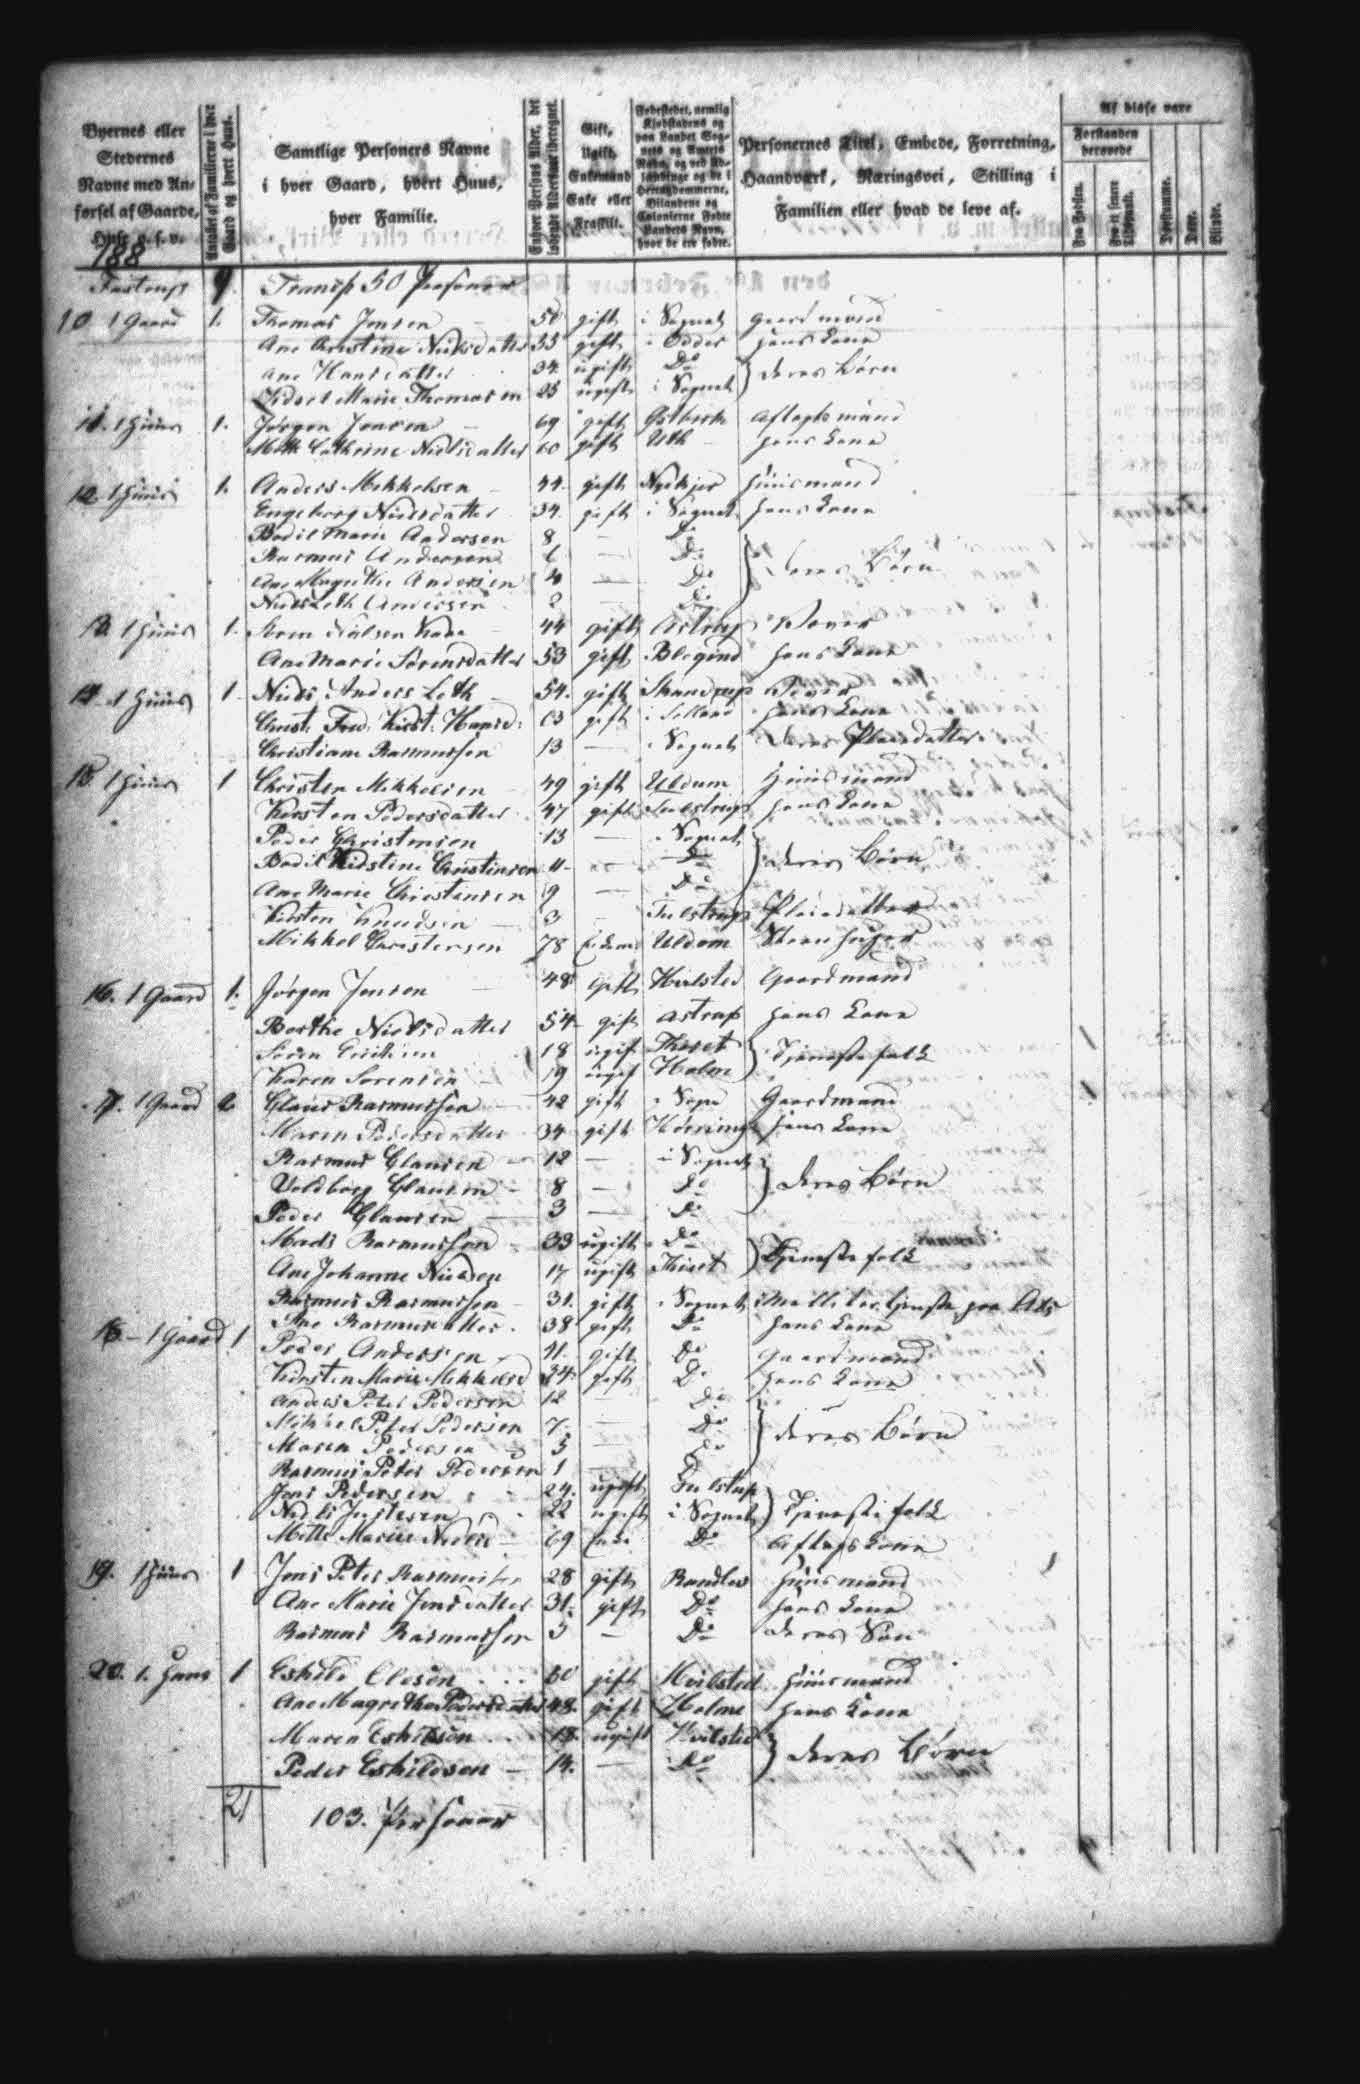 Byernes eller Stedernes Navne med Anførsel af Gaarde, Huse o. s. v.
Antallet af Familierne i hver Gaard og hvert Huus.
Samtlige Personers Navne i hver Gaard, hvert Huus, hver Familie.
Enhver Persons Alder, det løbende Aldersaar iberegnet.
Gift, Ugift, Enkemand Enke eller Fraskilt.
Fødestedet, nemlig Kjøbstadens og paa Landet Sognets og Amtets Navn, og ved Udlændinge og de i Hertugdømmerne, Bilandene og Colonierne Fødte Landets Navn, hvor de ere fødte.
Personernes Titel, Embede, Forretning, Haandværk, Næringsvei, Stilling i Familien eller hvad de leve af.
Af disse vare
Forstanden berøvede
Fra Fødsel.
Fra et senere Tidspunkt.
Døvstumme.
Døve.
Blinde.
188
9. Transp 50 Personer
10 1 Gaard 1. Thomas Jensen 50 gift i Sognet Gaardmand
Ane Kirstine Nielsdatter 55 gift i Odder hans Kone
Ane Hansdatter 34. ugift Do
Marie Thomasen 25 ugift i Sognet } deres Børn
11. 1 Huus 1. Jørgen Jensen 69 gift Aftægtsmand
Mette Cathrine Nielsdatter 60 gift hans Kone
12. 1 Huus 1. Anders Mikkelsen 44. gift Huusmand
Engeborg Nielsdatter 34. gift i Sognet hans Kone
Bodil Marie Andersen 8 — Do
Rasmus Andersen 6 — Do } deres Børn
Ane Magrethe Andersen 4 — Do
Niels Leth Andersen 2 — Do
13. 1 Huus 1. Nielsen 44 gift Astrup Væver
Ane Marie Sørensdatter 53 gift Blegind hans Kone
14. 1 Huus 1 Niels Anders Leth 54. gift Skanderup
Christ. Fred. Kirst. Hansd: 63 gift hans Kone
Christiane Rasmussen 13 — i Sognet deres Pleiedatter
15. 1 Huus 1 Christen Mikkelsen 49 gift Uldum Huusmand
Kirsten Pedersdatter 47 gift Tulstrup hans Kone
Peder Christensen 13 — i Sognet
Bodil Kirstine Christensen 11 — Do } deres Børn
Ane Marie Christensen 9 — Do
Kirsten Knudsen 3 — Tulstrup Pleiedatter
Mikkel Christensen 78 Enkem Uldum
16. 1 Gaard 1. Jørgen Jensen 48 Gift Hvilsted Gaardmand
Berthe Nielsdatter 54 gift Astrup hans Kone
Søren 18 ugif Thiset } Tjenestefolk
Karen Sørensen 19 ugif Holme
17. 1 Gaard 2 Claus Rasmussen 42 gift i Sogn Gaardmand
Maren Pedersdatter 34 gift Hørning hans Kone
Rasmus Clausen 12 — i Sognet
Voldborg Clausen 8 — Do } deres Børn
Peder Clausen 3 — Do
Mads Rasmussen 33 ugift Do } Tjenestefolk
Ane Johanne Nielsen 17 ugift Thiset
Rasmus Rasmussen 31. gift i Sognet
Ane Rasmusdatter 38 gift Do hans Kone
18 — 1 Gaard 1 Peder Andersen 41. gift Do Gaardmand
Kirsten Marie Mikkelsd 34 gift Do hans Kone
Anders Peter Pedersen 12 — Do
Mikkel Peter Pedersen 7 — Do } deres Børn
Maren Pedersen 5 — Do
Rasmus Peter Pedersen 1 — Do
Jens Pedersen 24. ugift Tulstup } Tjenestefolk
Niels Justesen 22 ugift i Sognet
Mette Marie Nielsd 69 Enke Do Aftægtskone
19. 1 Huus 1 Jens Peter Rasmussen 28 gift Randlev Huusmand
Ane Marie Jensdatter 31. gift Do hans Kone
Rasmus Rasmussen 3 — Do deres Søn
20. 1. Huus 1 Eskild Olesen 50 gift Hvilsted Huusmand
Ane Magrethe Pedersdatter 48. gift Holme hans Kone
Maren Eskildsen 18. ugift Hvilsted } deres Børn
Peder Eskildsen 14. — Do
21 103. Personer